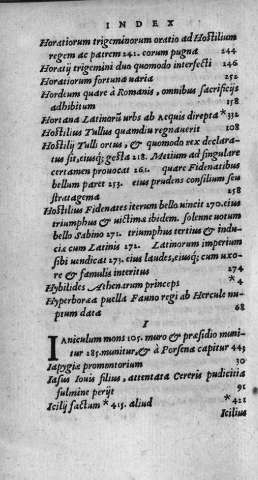 INDEX
Horatiorum trigeminorum oratio ad Hostilium
regem ac patrem 241. eorum pugna 244
Horatij trigemini duo quomodo interfecti 246
Horatiorum fortuna uaria 252
Hordeum quare à Romanis, omnibus sacrificijs
adhibitum 158
Hortana Latinorũ urbs ab Aequis direpta *332
Hostilius Tullus quamdiu regnauerit 108
Hostilij Tulli ortus, & quomodo rex declara-
tus sit, eiusq; gesta 218. Metium ad singulare
certamen prouocat 261. quare Fidenatibus
bellum paret 253. eius prudens consilium seu
stratagema 258
Hostilius Fidenates iterum bello uincit 270. eius
triumphus & uictima ibidem. solenne uotum
bello Sabino 271. triumphus tertius & indu-
ciæ cum Latinis 272. Latinorum imperium
sibi uendicat 273. eius laudes, eiusq; cum uxo-
re & famulis interitus 274
Hybilides Athenarum princeps *4
Hyperborea puella Fauno regi ab Hercule nu-
ptum data 68
I
IANICULUM mons 105. muro & præsidio muni-
tur 285. munitur, & à Porsena capitur 443
Iapygia promontorium 30
Iasus Iouis filius, attentata Cereris pudicitia
fulmine perijt 91
Icilij factum *415. aliud *421
Icilius